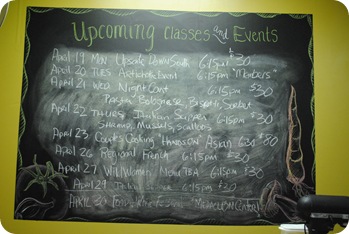 Upcoming Classes and Events
April 19 Mon Upscale Down South 6:15pm $30
April 20 Tues Artichoke Event 6:15pm "Members"
April 21 Wed Night Court 6:15pm $30
Bolognese, Biscotti, Sorbet
April 22 Thurs Italian 6:15pm $30
Shrimp, Mussels, Scallops
April 23 Couples Cooking "Hands On" Asian 6:30 $80
April 26 Regional French 6:15pm $30
April 27 Wild Women Menu TBA 6:15pm $30
April 29 Italian 6:15pm $30
April 30